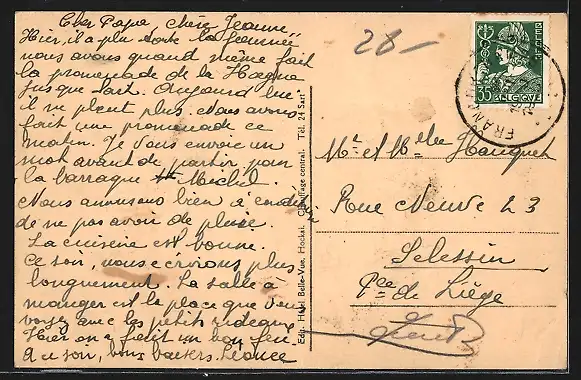 Cher Papa, chère Jeanne,
Hier, il a plu toute la journée
nous avons quand même fait
la promenade de la Hoëgne
jusque Sart. Aujourd'hui
il ne pleut plus. Nous avons
fait une promenade ce
matin. Je vous envoie un
mot avant de partir pour
la barraque Michel.
Nous aimerions bien
de ne pas avoir de pluie.
La cuisine est bonne.
Ce soir, nous écrivons plus
longuement. La salle à
manger est la place que vous
voyez avec les petits rideaux
Hier on a fait un bon feu.
à ce soir, bons baisers. Léonce
Edit. Hôtel Belle-Vue, Hockai. Chauffage central. Tél. 24 Sart
28-
35
BELGIQUE
FRAN
Mr et Mlle Hauquet
Rue Neuve 23
Sclessin
Pce de Liège